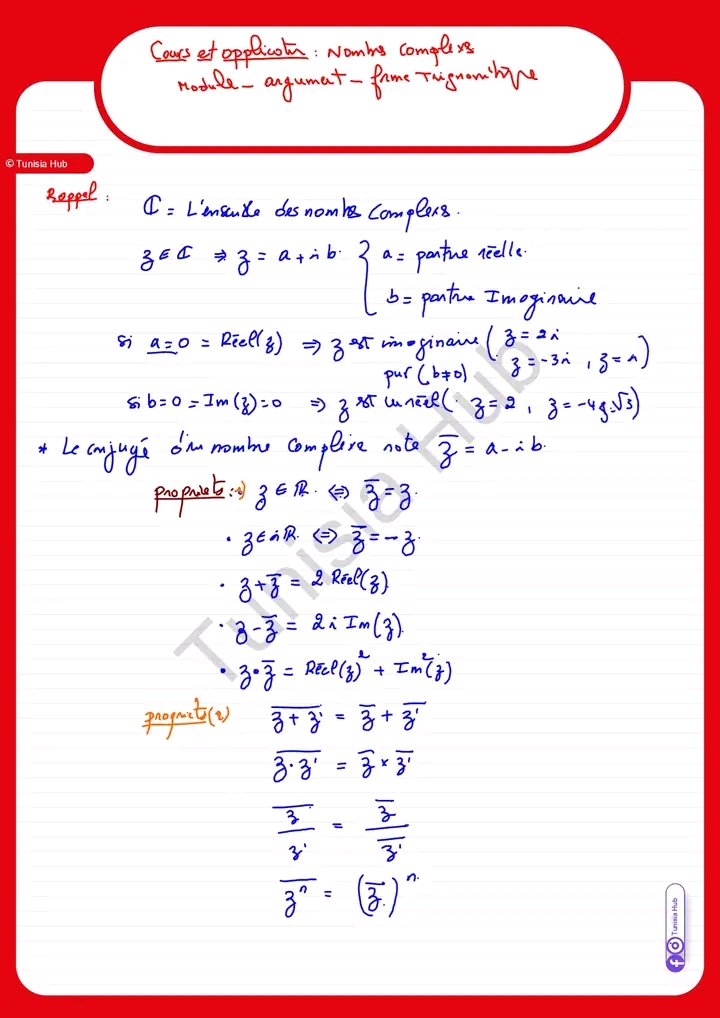 Cours et application : Nombres complexes
Module - argument - forme Trigonométrique
© Tunisia Hub
Rappel :
ℂ = L'ensemble des nombres complexes.
z ∈ ℂ ⇒ z = a + ib { a = partie réelle.
b = partie Imaginaire
si a = 0 = Réel(z) ⇒ z est imaginaire pur (b≠0) ( z = 2i
z = -3i , z = i )
si b = 0 = Im(z) = 0 ⇒ z est un réel (. z = 2 , z =
* Le conjugé d'un nombre complexe note z̅ = a - ib.
propriets : 1) z ∈ ℝ. ⇔ z̅ = z.
• z ∈ iℝ. ⇔ z̅ = - z.
• z + z̅ = 2 Réel(z)
• z - z̅ = 2i Im(z).
• z • z̅ = Réel(z)² + Im²(z)
propriets (2) \overline{z + z'} = \overline{z} + \overline{z'}
\overline{z . z'} = \overline{z} × \overline{z'}
\overline{z}/z' = \overline{z}/\overline{z'}
\overline{z^n} = (\overline{z}.)^n.
Tunisia Hub
Tunisia Hub